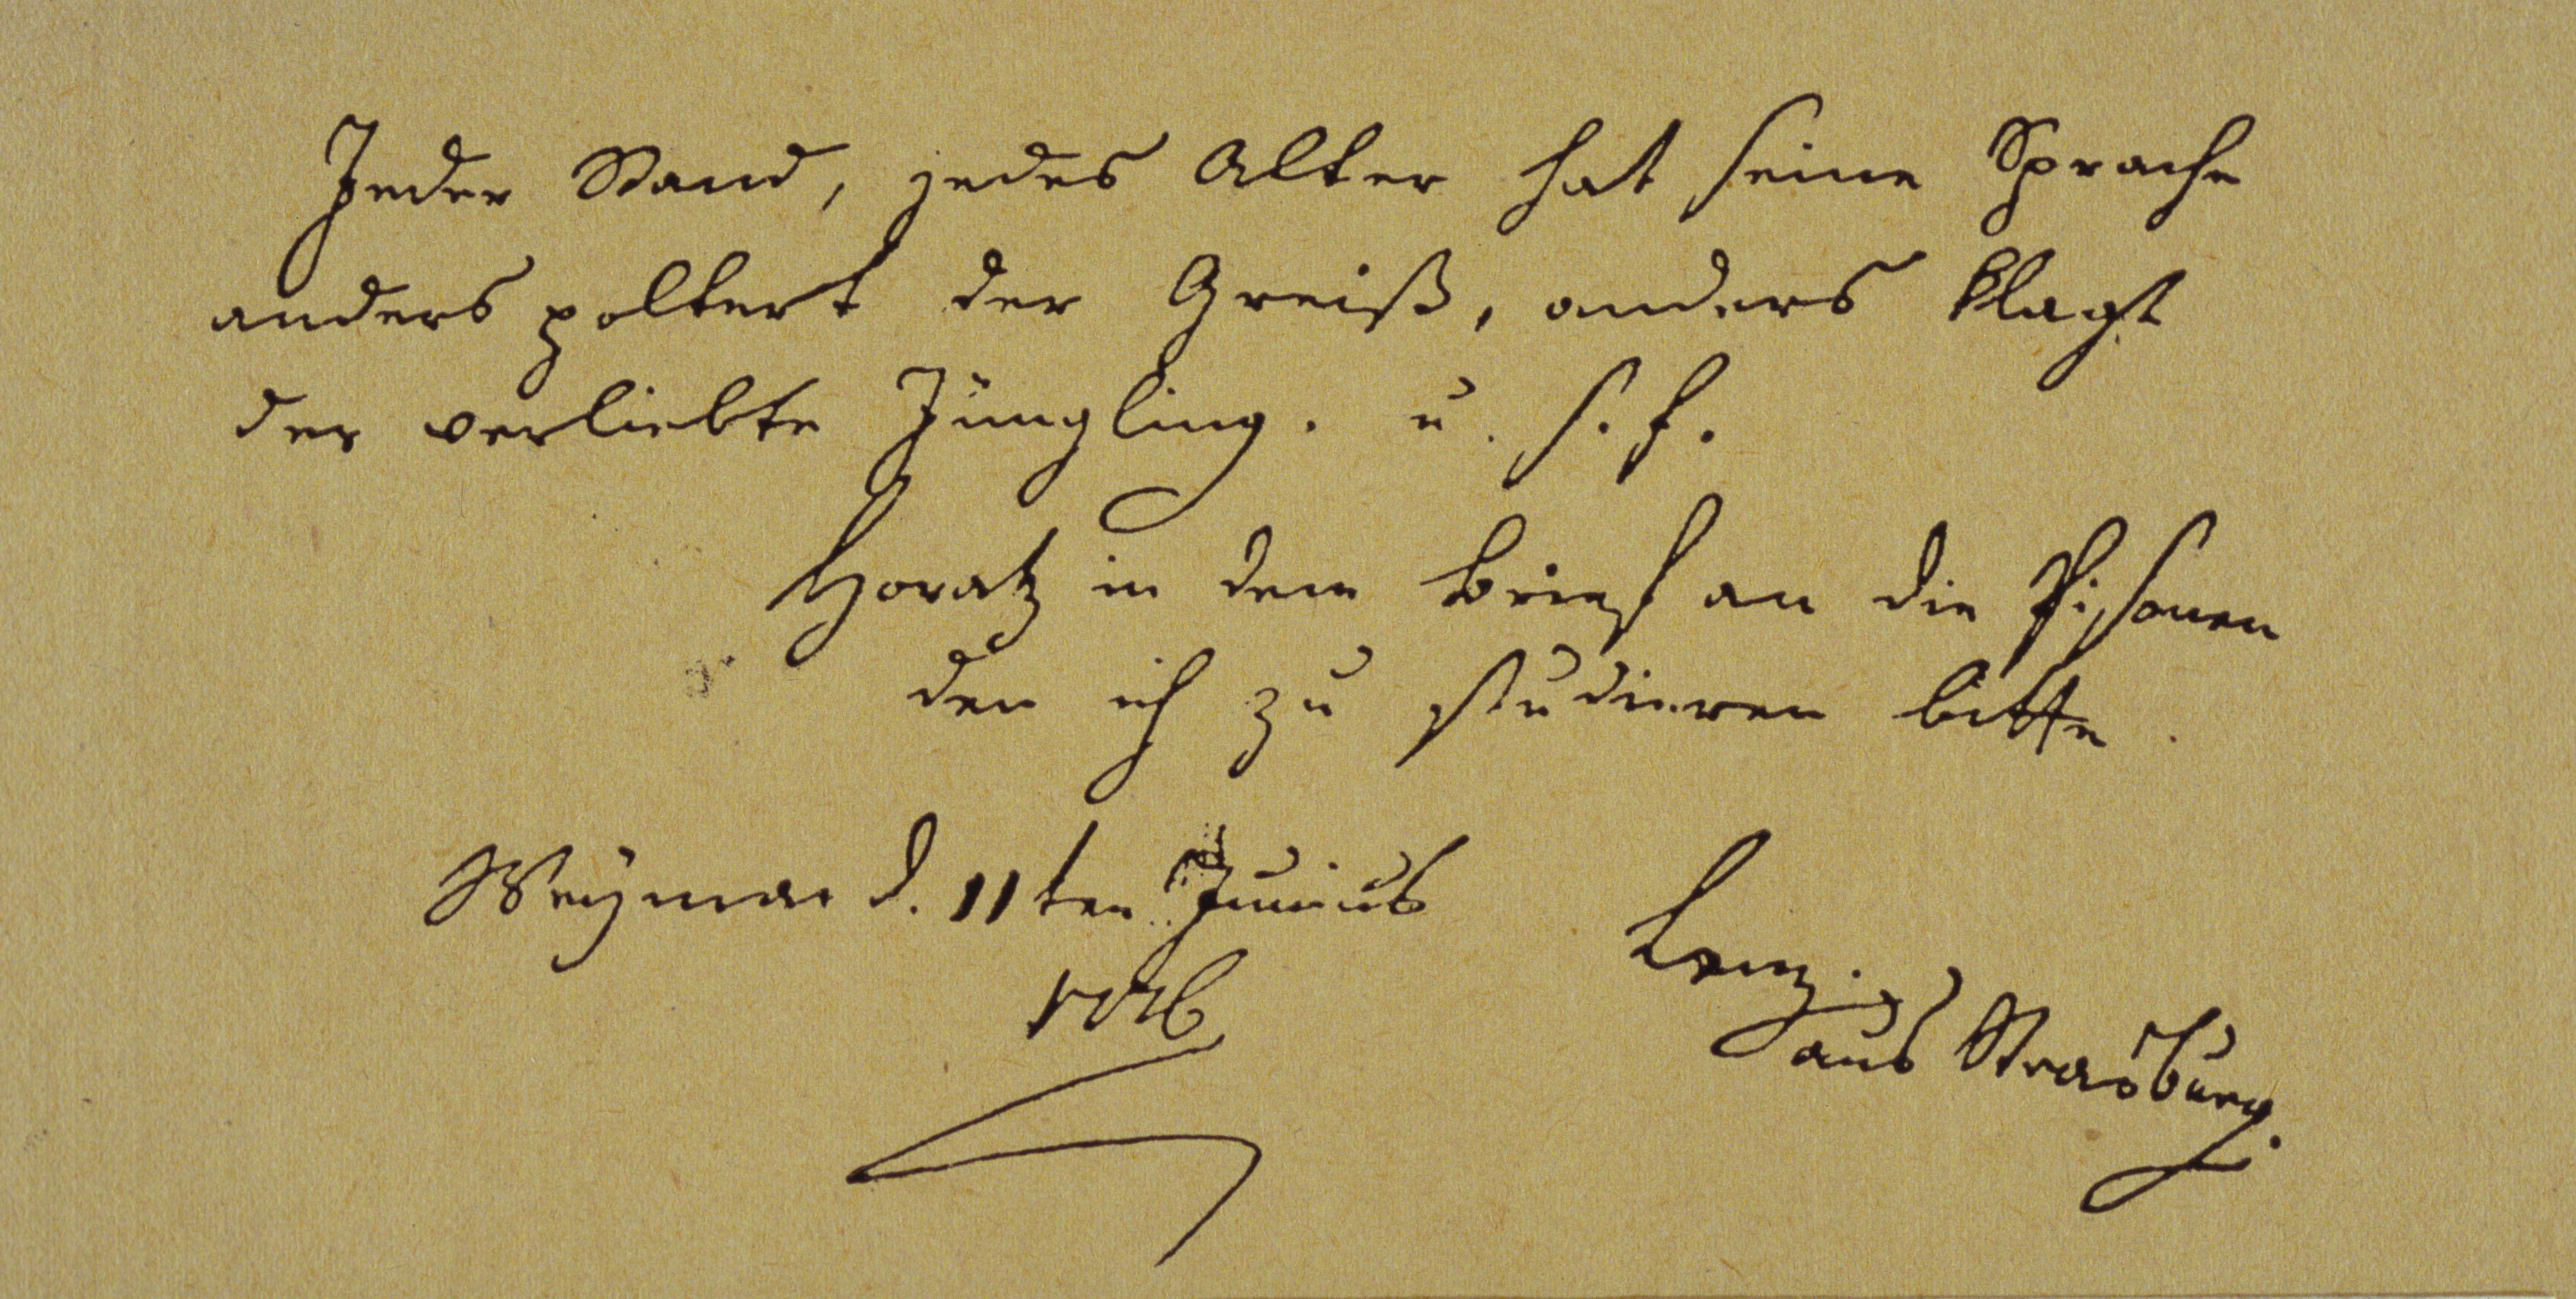 Jeder Stand, jedes Alter hat seine Sprache
anders poltert der Greiß, anders klagt
der verliebte Jüngling. u. s. f.
Horatz in dem Brief an die Pisonen
den ich zu studieren bitte.
Weymar d. 11ten Junius
1776
Lenz
aus Strasburg.